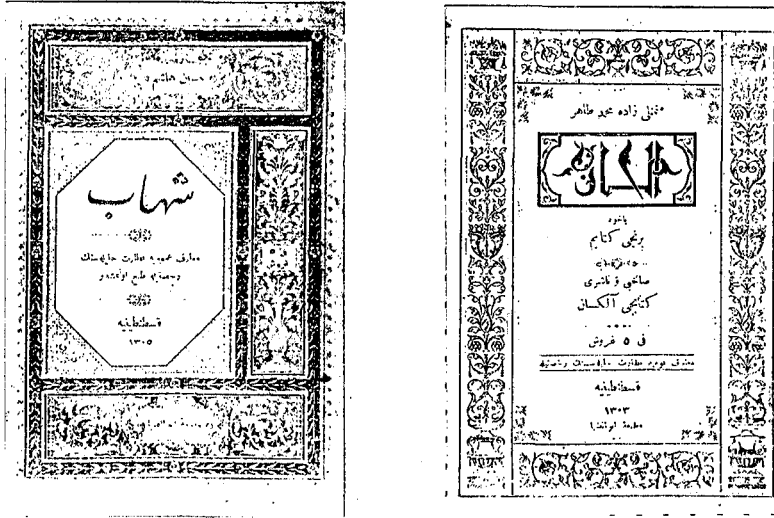 شهاب
معارف عمومیه نظارت جلیله‌سنك
رخصتیله طبع اولنمشدر
قسطنطینیه
١٣٠٥
زاده محمد طاهر
الحان
یاخود
برنجی كتابم
صاحبی و ناشری
كتابجی آلكسان
فی ٥ غروش
معارف عمومیه نظارت جلیله‌سنك رخصتیله
قسطنطینیه
١٣٠٣
مطبعۀ ابوالضیا